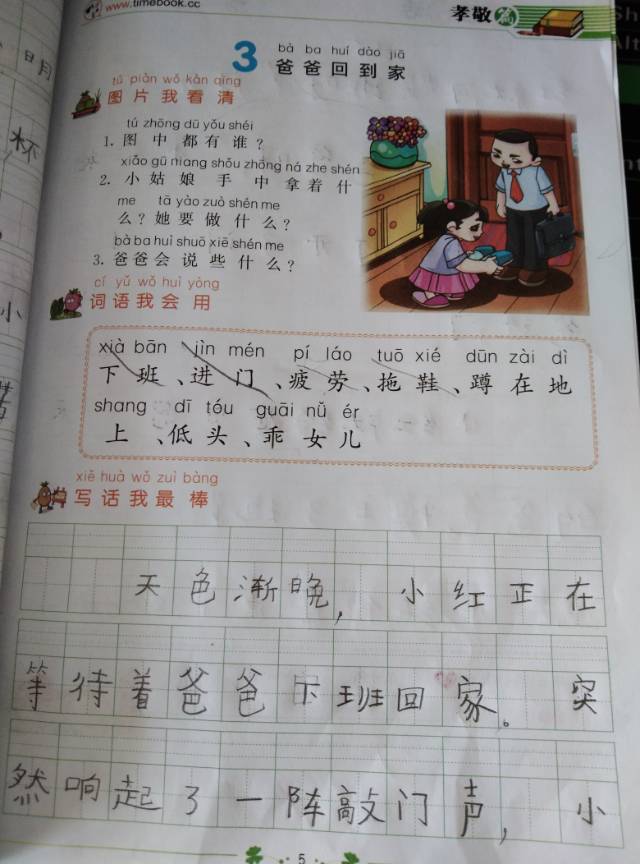 www.timebook.cc
孝敬篇
bà ba huí dào jiā
3 爸爸回到家
tú piàn wǒ kàn qīng
图片我看清
tú zhōng dū yǒu shéi
1. 图中都有谁？
xiǎo gū niang shǒu zhōng ná zhe shén
2. 小姑娘手中拿着什
me tā yào zuò shén me
么？她要做什么？
bà ba huì shuō xiē shén me
3. 爸爸会说些什么？
cí yǔ wǒ huì yòng
词语我会用
xià bān jìn mén pí láo tuō xié dūn zài dì
下班、进门、疲劳、拖鞋、蹲在地
shang dī tóu guāi nǚ ér
上、低头、乖女儿
xiě huà wǒ zuì bàng
写话我最棒
天色渐晚，小红正在
等待着爸爸下班回家。突
然响起了一阵敲门声，小
5
日月
杯
小